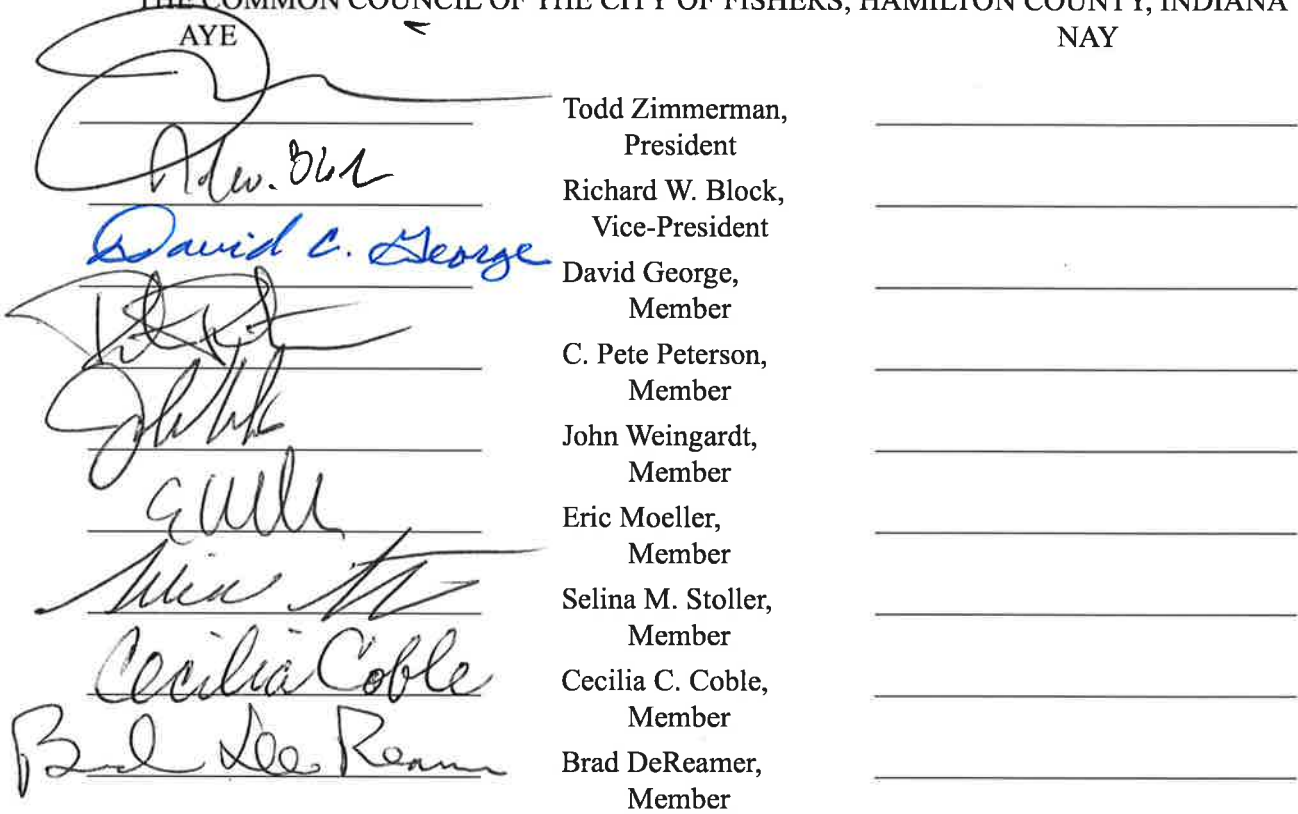 THE COMMON COUNCIL OF THE CITY OF FISHERS, HAMILTON COUNTY, INDIANA
AYE NAY
Todd Zimmerman,
President
Richard W. Block,
Vice-President
David C. George
David George,
Member
C. Pete Peterson,
Member
John Weingardt,
Member
Eric Moeller,
Member
Selina M. Stoller,
Member
Cecilia Coble
Cecilia C. Coble,
Member
Brad DeReamer,
Member